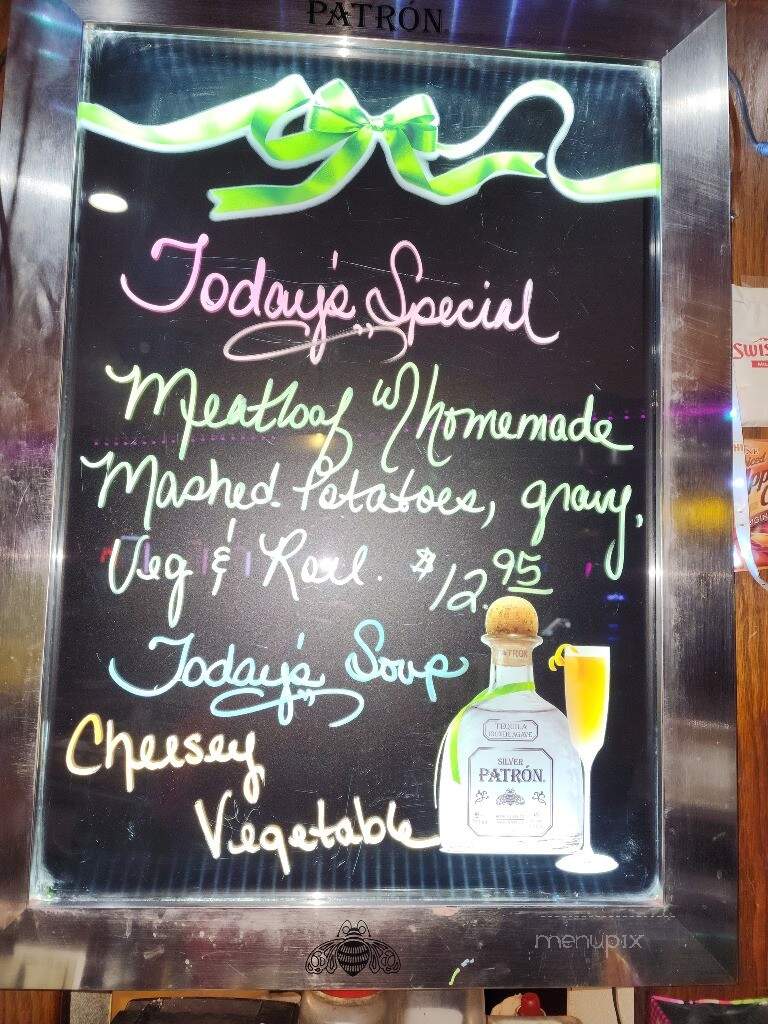 PATRÓN
Today's Special
Meatloaf w/ homemade
Mashed Potatoes, gravy,
Veg & Roll. $12.95
Today's Soup
Cheesey
Vegetable
PATRÓN
TEQUILA
SILVER
PATRÓN
SWIS
menupix